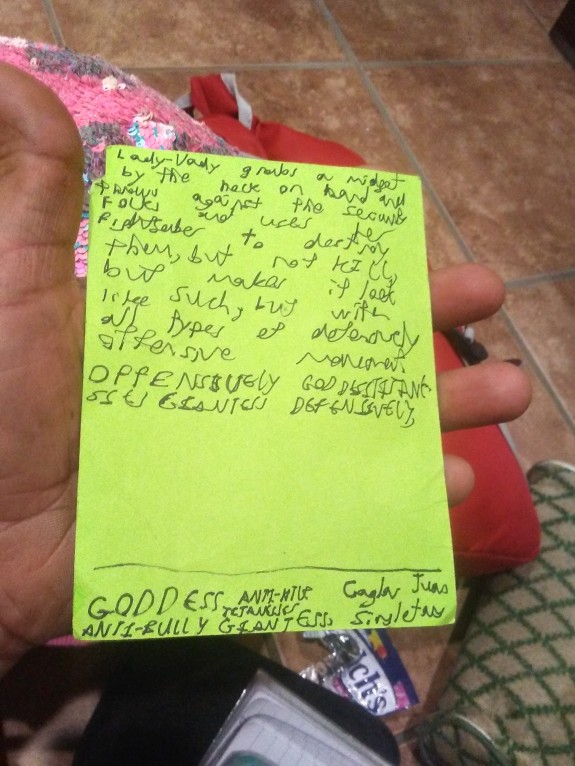 Lady-Vady grabs a midget
by the neck on hand and
throws against the security
Folks and uses her
to destroy
them, but not KILL,
but makes it look
like such, but with
all types of defensively
offensive movement
OFFENSIVELY
GIANTESS DEFENSIVELY,
GODDESS ANTI-
ANTI-BULLY GIANTESS, Singletary
ch's